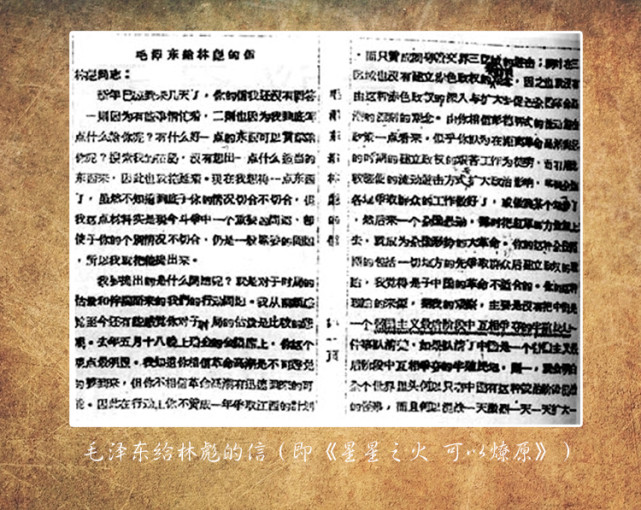 毛泽东给林彪的信
林彪同志：
新年已经到来几天了，你的信我还没有回答
。一则因为有些事情忙着，二则也因为我到底写
点什么给你呢？有什么好一点的东西可以贡献给
你呢？搜索我的枯肠，没有想出一点什么适当的
东西来，因此也就拖延着。现在我想得一点东西
了，虽然不知道到底于你的情况切合不切合，但
我这点材料实是现今斗争中一个重要的问题，即
使于你的个别情况不切合，仍是一般紧要的问题
，所以我就把他提出来。
我要提出的是什么问题呢？就是对于时局的
估量和伴随而来的我们的行动问题。我从前颇感
觉至今还有些感觉你对于时局的估量是比较的悲
观。去年五月十八晚上的会议席上，你这个
观点最明显。我知道你相信革命高潮不可避免
的要到来，但你不相信革命高潮有迅速到来的可
能。因此在行动上你不赞成一年争取江西的计划
，而只赞成闽粤赣交界三区域的游击；同时在三
区域也没有建立赤色政权的观念，因之也就没有
由这种赤色政权的深入与扩大去促进全国革命高
潮的深刻的观念。由你相信式的流动游击
政策一点看来，似乎你认为在距离革命高潮尚远
的时期做建立政权的艰苦工作为徒劳，而有用比
较轻便的流动游击方式扩大政治影响，等到全国
各地争取群众的工作做好了，或做到某个地步了
，然后来一个全国暴动，那时把红军的力量加上
去，就成为全国形势的大革命。你的这种全国范
围的包括一切地方的先争取群众后建立政权的理
论，我觉得是于中国革命不适合的。你的这种
理论的来源，据我的观察，主要是没有把中国是
一个帝国主义最后阶段中互相争夺的半殖民地一
件事认清楚。如果认清了中国是一个帝国主义最
后阶段中互相争夺的半殖民地，则一，就会明白
全个世界里头何以只有中国有这种统治阶级混战
的怪事，而且何以混战一天激烈一天一天扩大一
毛泽东给林彪的信（即《星星之火 可以燎原》）